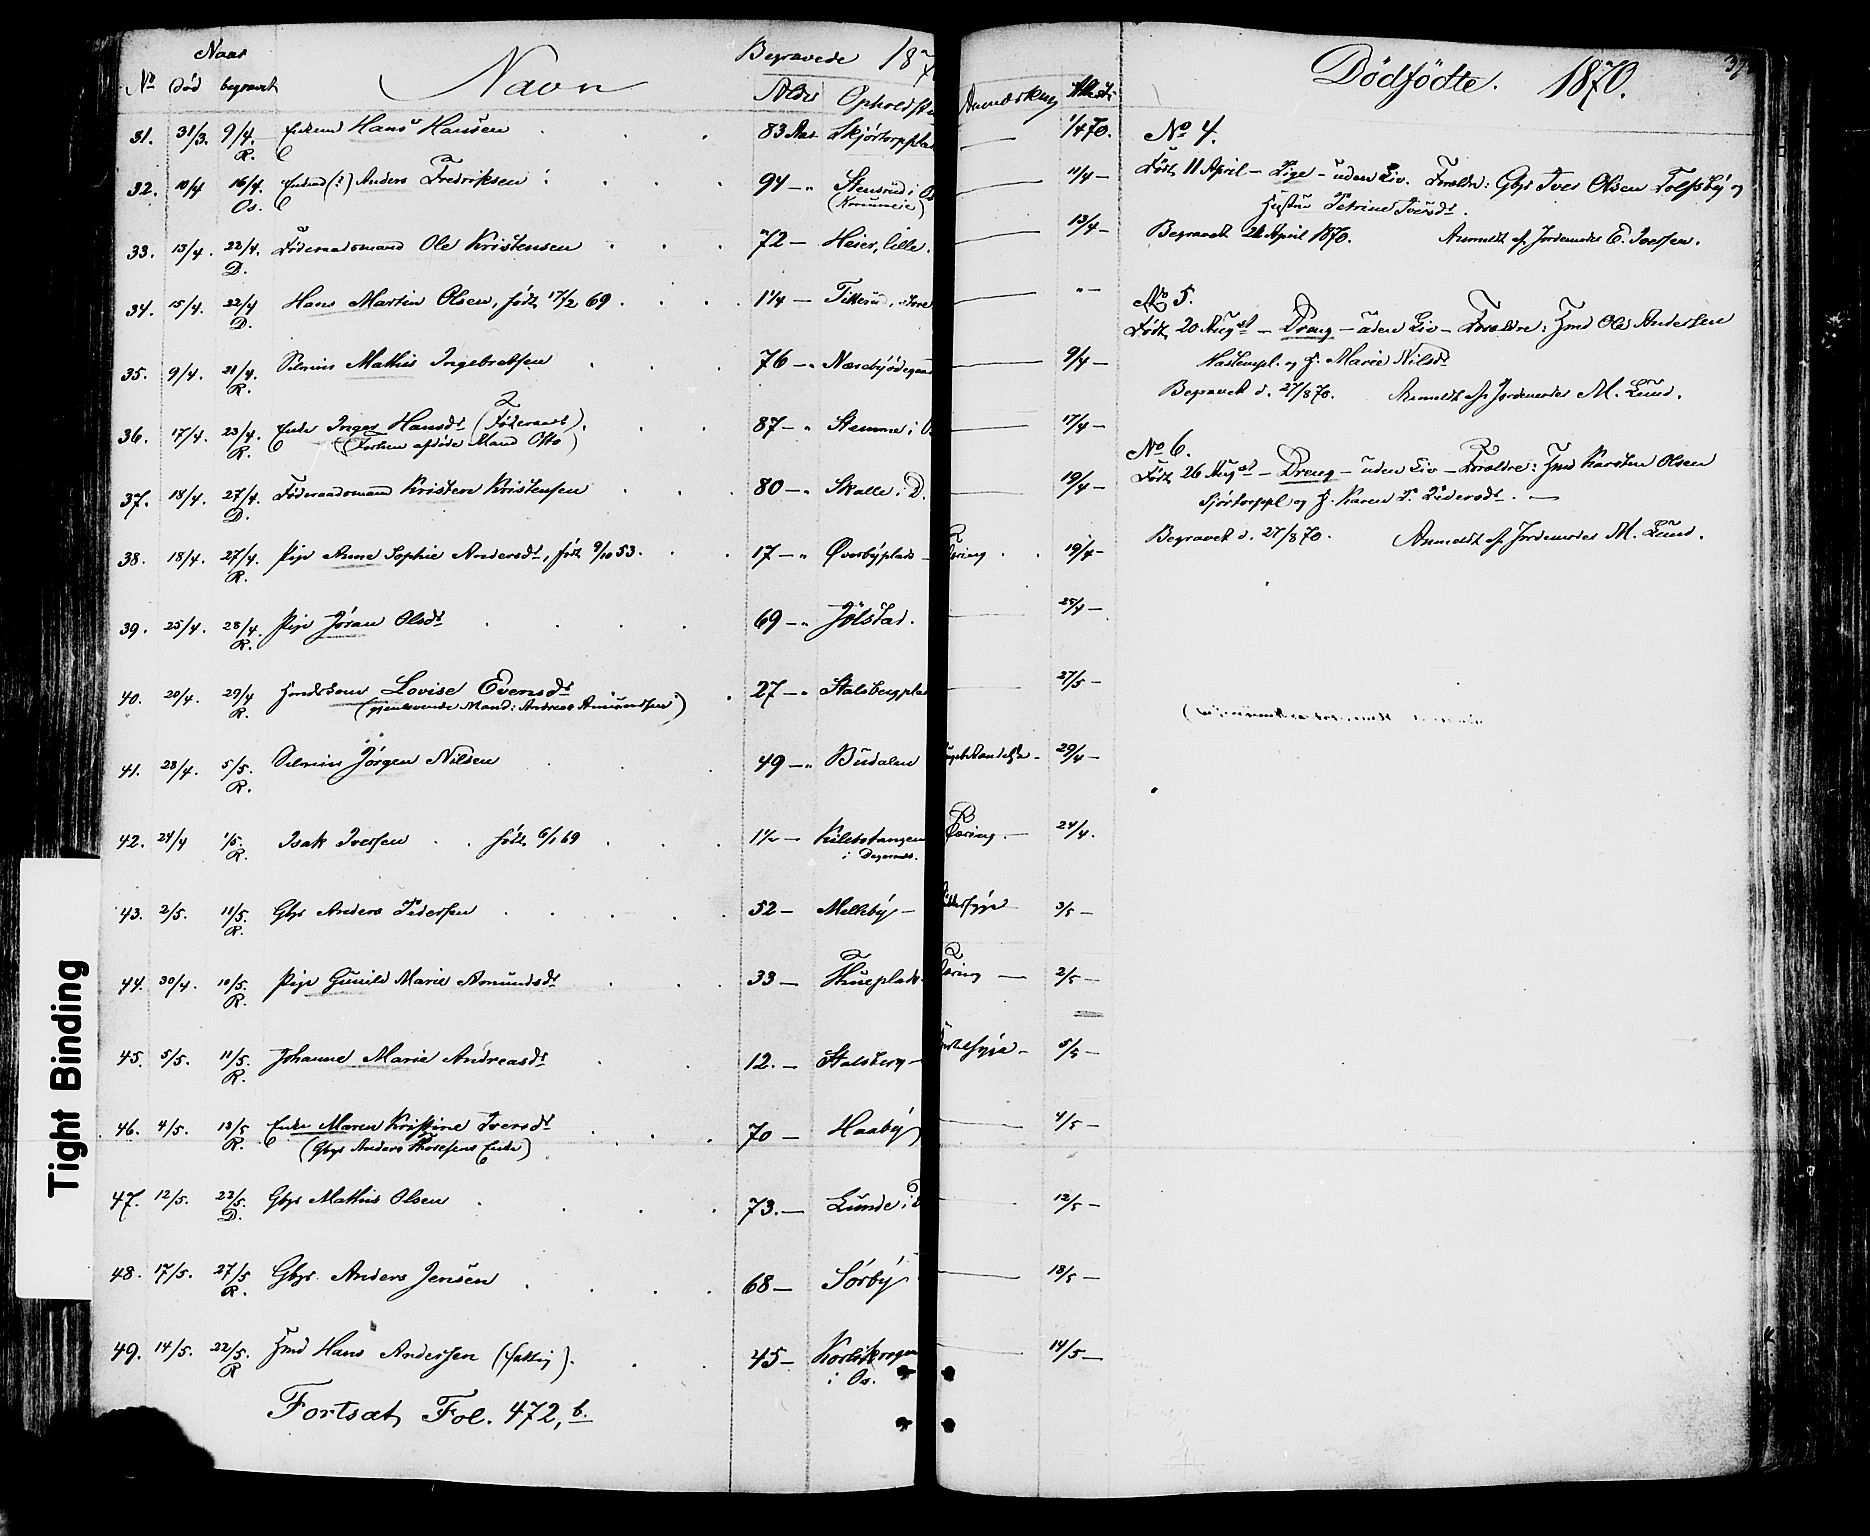 Naar Begravede 187
No død begravet Navn Alder Opholdst Anmærkning
31. 31/3. 9/4. R. Enkemd Hans Hansen 83 Aar Skjørtorpplad 1/4 70.
32. 10/4 16/4. Os. Enkemd (?) Anders Fredriksen 94 — " Stensrud i Os 11/4 —
(Konumeie)
33. 13/4. 22/4. D. Föderaadsmand Ole Kristensen 72 — Heier, lille. 13/4 —
34. 15/4. 22/4 D. Hans Martin Olsen, født 17/2 69. 1 1/4 — store " —
35. 9/4. 21/4. R. Selveier Mathis Ingebretsen 76 — " Næsebyødegaard 9/4 —
36. 17/4. 23/4. R. Enke Inger Hansdt (Föderaad). 87 — " Stemme i O 17/4 —
(Forhen afdøde Mand Otto)
37. 18/4. 27/4. D. Föderaadsmand Kristen Kristensen 80 — " Skolle i D. 19/4 —
38. 18/4. 27/4. R. Pige Anne Sophie Andersdt, født 9/10 53. 17 — " Øverbyplads — Tæring. 19/4 —
39. 25/4. 28/4. R. Pige Jöran Olsdt 69 — " Jölstad. 25/4 —
40. 20/4. 29/4 R. Lovise Evensdt 27 — " Stalsbergpla 27/5 —
(gjenlevende Mand: Andreas Amundsen)
41. 28/4. 5/5. R. Selveier Jörgen Nilsen 49 — " Budalen 29/4 —
42. 24/4 1/5. R. Isak Iversen født 6/1 69 1 1/2 — Kilebotangen Tæring. — 24/4.
i Degernes.
43. 2/5. 11/5. R. Gbr Anders Pedersen 52 — Melleby — 3/5 —
44. 30/4. 10/5. R. Pige Gunild Marie Amundsdt 33 — Thueplads. Tæring — 2/5 —
45. 5/5. 11/5. R. Johanne Marie Andreasdt 12. — Stalsberg — 5/5 —
46. 4/5. 13/5 R. Enke Maren Kristine Iversdt 70 — Haaby 4/5 —
(Gbrs Anders Thoresens Enke)
47. 12/5. 22/5. D. Gbr Mathis Olsen 73. — Lunde i D 12/5 —
48. 17/5. 27/5 R. Gbr. Anders Jensen 68 — Sörby 18/5 —
49. 14/5. 22/5. R Hmd Hans Andersen (fattig). 45 — Korterskrogen 14/5 —
i Os.
Fortsat, Fol. 472, b.
Dödfödte. 1870. 37
No 4.
Födt 11 April — Pige — uden Liv. Forældre: Gbr Iver Olsen Folfsby og
Hustru Petrine Iversdt.
Begravet 21 April 1870. Anmeldt af Jordemoder E. Iversen.
No 5.
Födt 20 August — Dreng — uden Liv — Forældre: Hmd Ole Andersen
og H. Marie Nilsdt
Begravet d. 27/8 70. Anmeldt af Jordemoder M. Lund.
No 6.
Födt 26 August — Dreng — uden Liv — Forældre: Hmd Karsten Olsen
Sjörtorppl og H. Karen P. Pedersdt. —
Begravet d. 27/8 70. Anmeldt af Jordemoder M. Lund.
Tight Binding